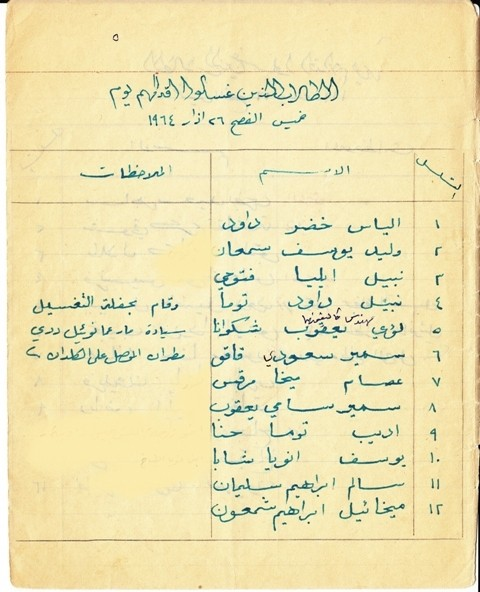 ٥
الطلاب الذين غسلوا اقدامهم يوم
خميس الفصح ٢٦ اذار ١٩٦٤
التسلسل الاسم الملاحظات
١ الياس خضر داود
٢ وليد يوسف سمعان
٣ نبيل ايليا فتوحي
٤ نبيل داود توما وقام بحفلة التغسيل
٥ لؤي يعقوب شيكوانا سيادة مار عمانوئيل ددي
٦ سمير سعودي فاقو مطران الموصل على الكلدان
٧ عصام ميخا مرقس
٨ سمير سامي يعقوب
٩ اديب توما حنا
١٠ يوسف انويا شابا
١١ سالم ابراهيم سليمان
١٢ ميخائيل ابراهيم شمعون